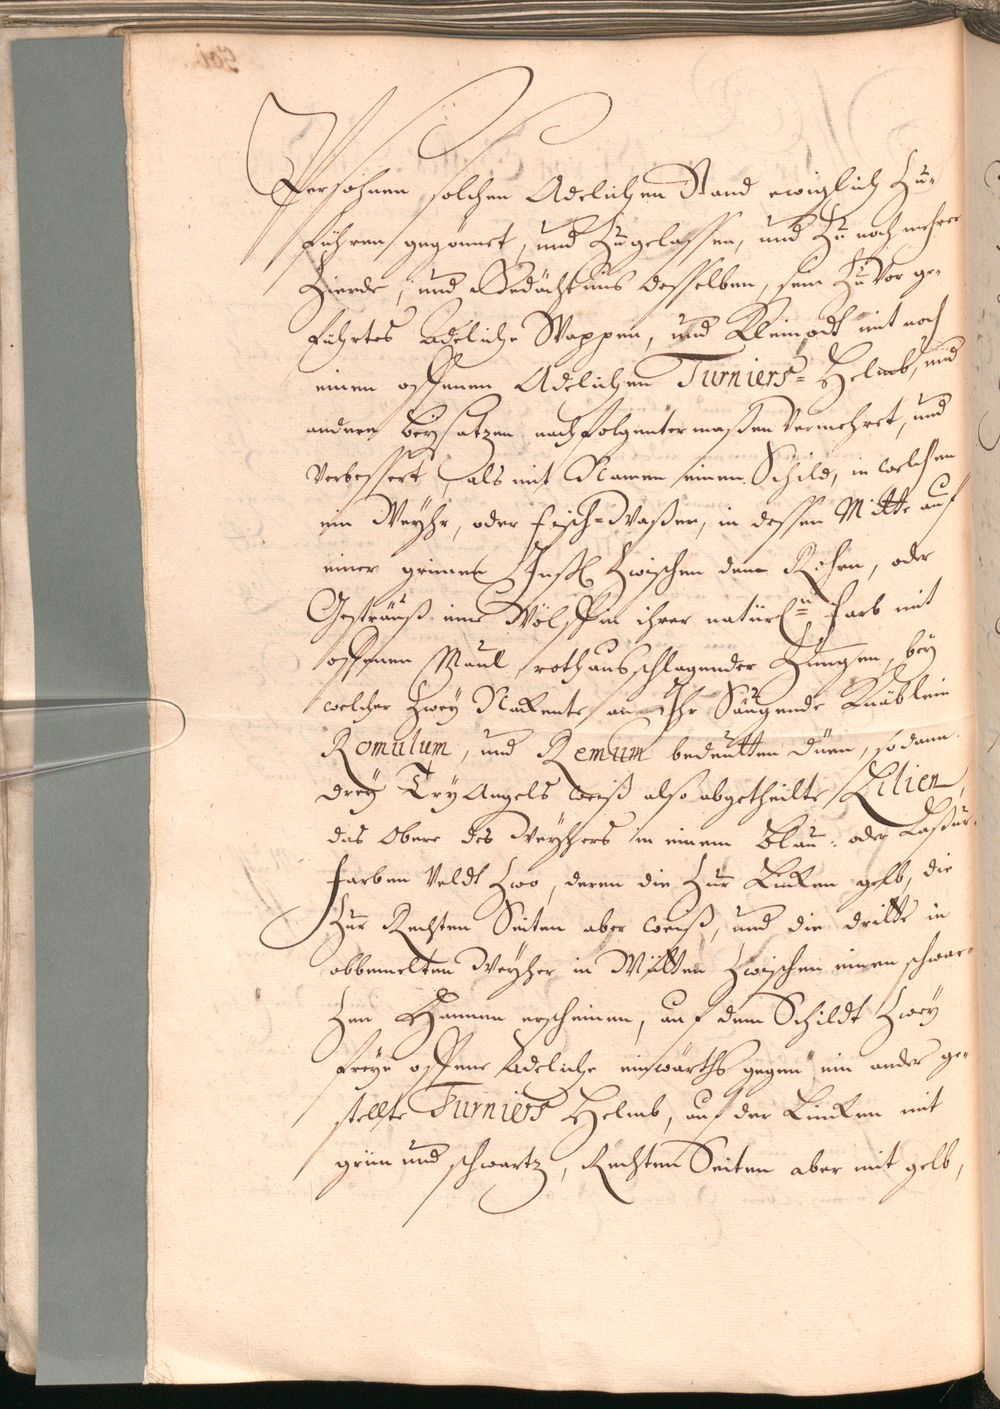 Persohnen solchen Adelichen Stand ewiglich zu-
führen gegönnet, und zugelassen, und zu noch mehrer
Zierde, und Gedächtnus desselben, sein zuvor ge-
führtes adeliche Wappen, und Kleinodt mit noch
einen offenen Adelichen Turniers-Helmb, und
andern beysatzen nachfolgentermaßen vermehret, und
verbessert, als mit Namen einen Schild, in welchen
ein Weyhr, oder fisch-Waßer, in dessen Mitte auf
einer grünen Insl zwischen dem Rohrn, oder
Gesträuß eine Wölffin ihrer natürl:n farb mit
offenen Maul roth ausschlagender Zungen, bey
welcher zwey Nakente an Ihr Saugende Knäblein
Romulum, und Remum bedeutten düen, sodann
drey TryAngels weiß also abgetheilte Lilien,
das Obere des Weyhers in einem blau: oder Laßur-
farben Veldt zwo, deren die zur Linken gelb, die
zur Rechten Seiten aber weiß, und die dritte in
obbemelten Weyher in Mitten zwischen einen schwar-
zen erscheinen, auf dem Schildt zwey
freye offene Adeliche einwärths gegen ein ander ge-
stellte Turniers Helmb, auf der Linken mit
grün und schwartz, Rechten Seiten aber mit gelb,